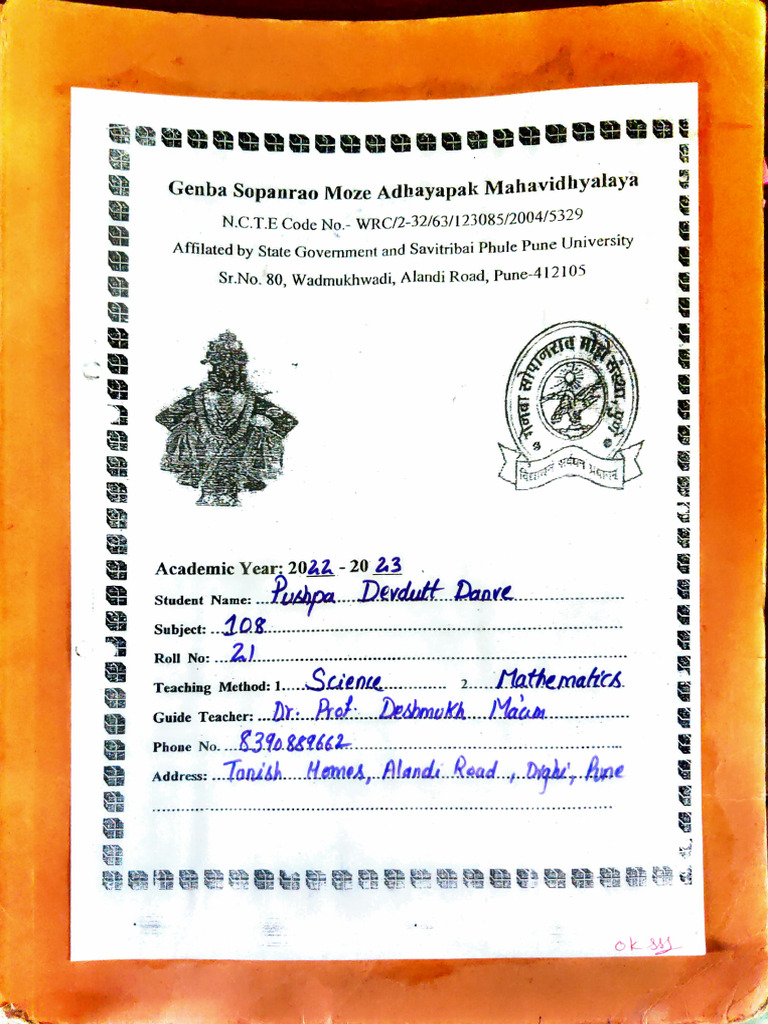 Genba Sopanrao Moze Adhayapak Mahavidhyalaya
N.C.T.E Code No.- WRC/2-32/63/123085/2004/5329
Affilated by State Government and Savitribai Phule Pune University
Sr.No. 80, Wadmukhwadi, Alandi Road, Pune-412105
गेनबा सोपानराव मोझे संस्था, पुणे
Academic Year: 2022 - 2023
Student Name: Pushpa Devdutt Danve
Subject: 108
Roll No: 21
Teaching Method: 1. Science 2. Mathematics
Guide Teacher: Dr. Prof. Deshmukh Ma'am
Phone No. 8390889662
Address: Tanish Homes, Alandi Road, Dighi, Pune
OK